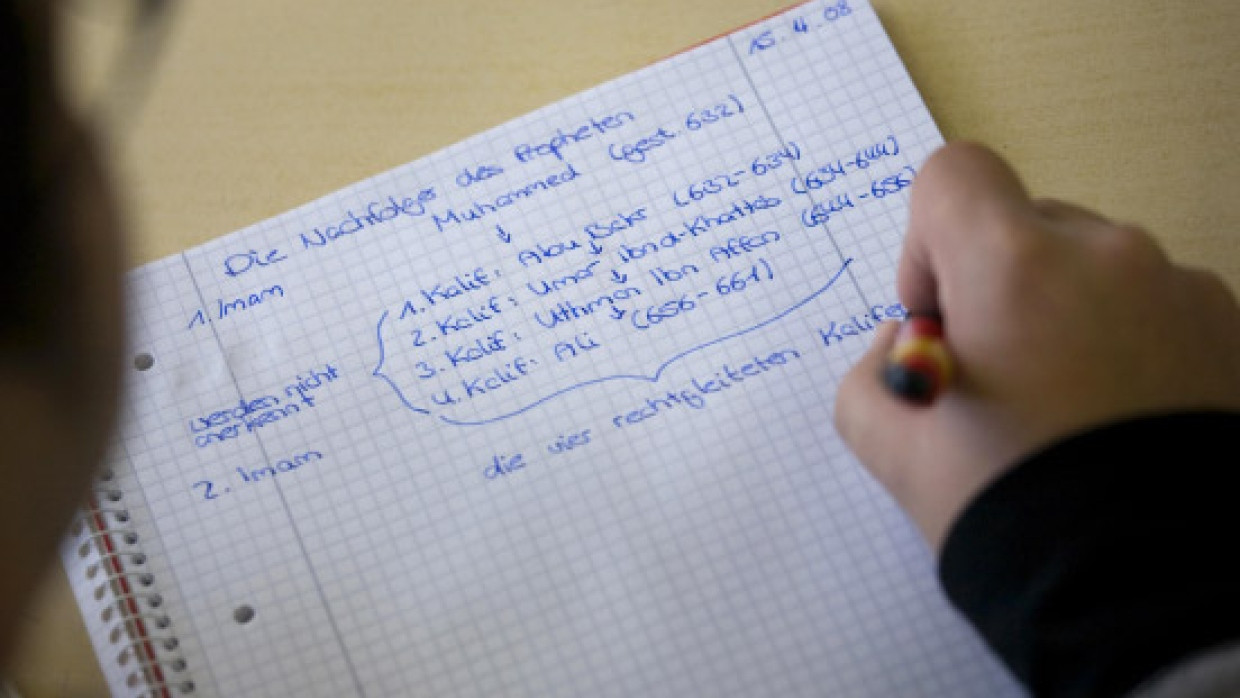 15.4.08
Die Nachfolger des Propheten
Muhammed (gest. 632)
↓
1. Imam
1. Kalif: Abu Bakr (632-634)
↓
2. Kalif: Umar Ibn al-Khattab (634-644)
↓
3. Kalif: Uthman Ibn Affan (644-656)
↓
4. Kalif: Ali (656-661)
werden nicht
anerkennt
2. Imam
die vier rechtgleiteten Kalifen